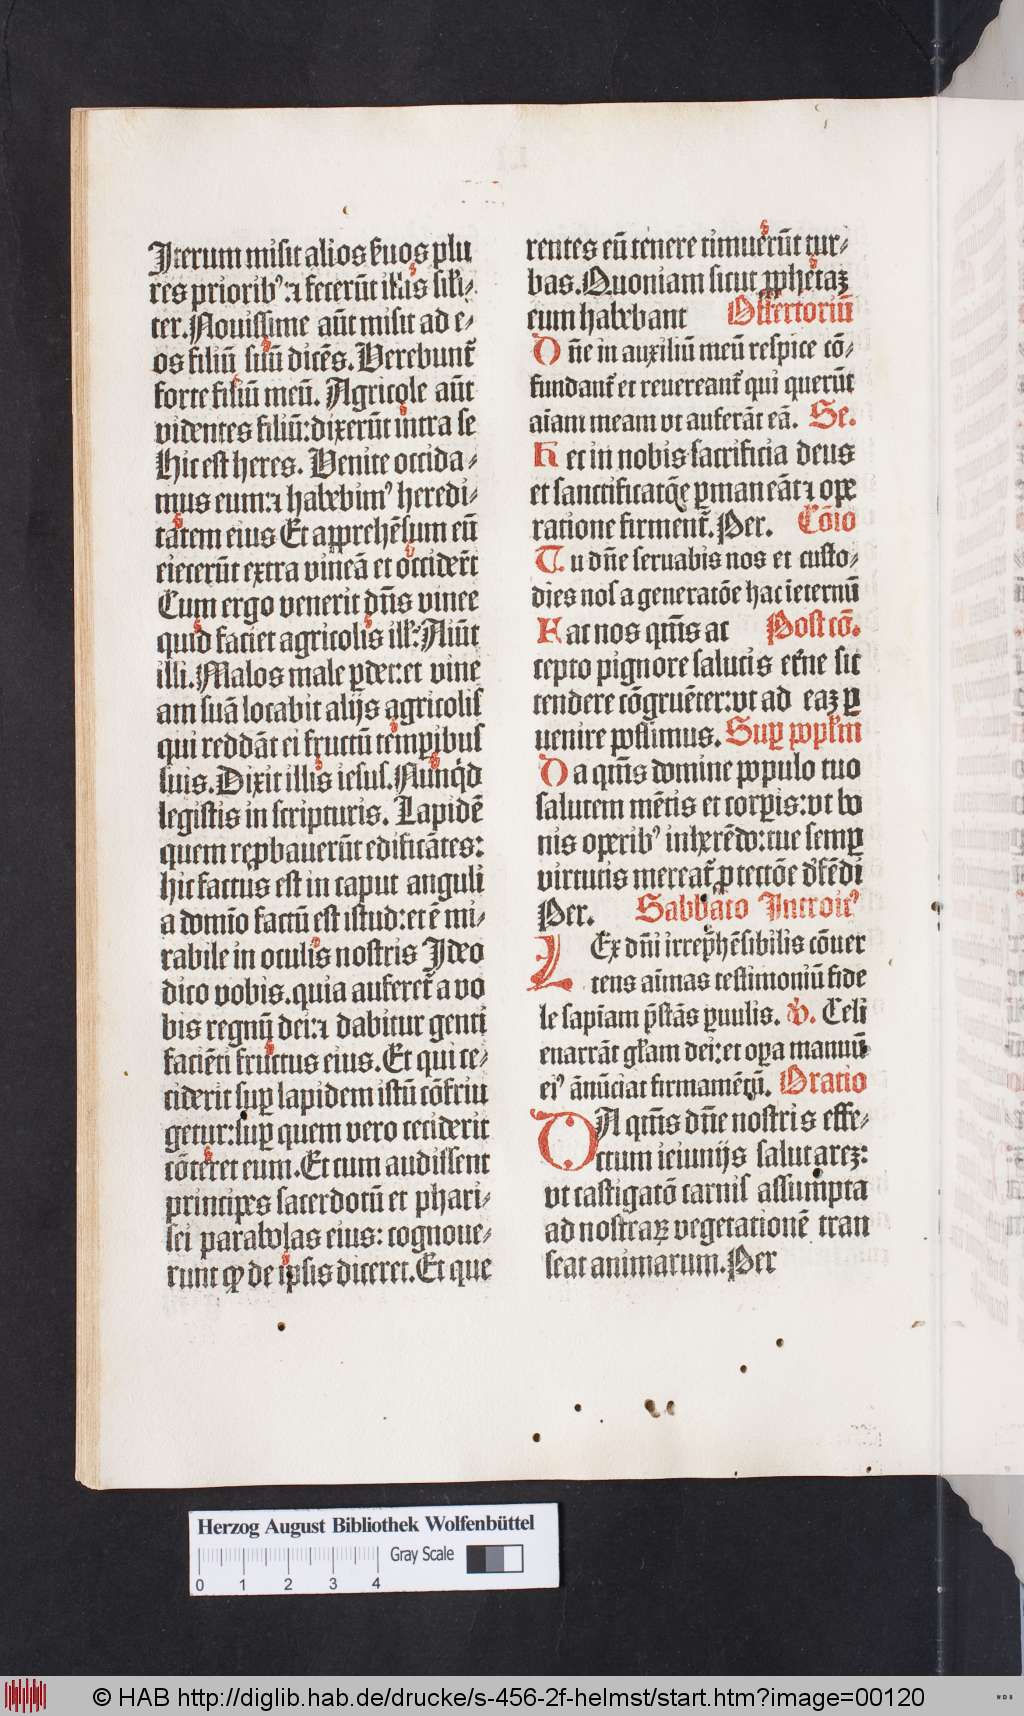 Iterum misit alios ẜuos plu
res priorib⁹:⁊ fecerūt ill'is sil'i⸗
ter. Nouissime aūt misit ad e⸗
os filiū suū dicēs. Verebunt᷑
forte filiū meū. Agricole aūt
videntes filiū:dixerūt intra se
Hic est heres. Venite occida⸗
mus eum:⁊ habebim⁹ heredi⸗
tatem eius Et apprehēsum eū
eiecerūt extra vineā et occider̄t
Cum ergo venerit dn̄s vinee
quid faciet agricolis ill':Aiūt
illi. Malos male ꝑder:et vine
am suā locabit alijs agricolis
qui reddāt ei fructū tempibus
suis. Dixit illis iesus. Nunqd
legistis in scripturis. Lapidē
quem reꝓbauerūt edificātes:
hic factus est in caput anguli
a domīo factū est istud:et ē mi⸗
rabile in oculis nostris Ideo
dico vobis. quia auferet᷑ a vo
bis regnū dei:⁊ dabitur genti
faciēti fructus eius. Et qui ce⸗
ciderit suꝑ lapidem istū cōfrin
getur:suꝑ quem vero ceciderit
cōteret eum. Et cum audissent
principes sacerdotū et phari⸗
sei parabolas eius: cognoue⸗
runt ꝙ de ipsis diceret. Et que
rentes eū tenere timuerūt tur⸗
bas. Quoniam sicut ꝓphetaꝫ
eum habebant Offertoriū
D n̄e in auxiliū meū respice cō⸗
fundant᷑ et reuereant᷑ qui querūt
aīam meam vt auferāt eā. Se.
H ec in nobis sacrificia deus
et sanctificatōe ꝑmaneāt ⁊ ope
ratione firment᷑. Per. Cōio
T u dn̄e seruabis nos et custo⸗
dies nos a generatōe hac ieternū
F ac nos qm̄s ac Post cō.
cepto pignore salutis et'ne sic
tendere cōgruēter:vt ad eaꝫ ꝑ
uenire possimus. Suꝑ popl'm
D a qm̄s domine populo tuo
salutem mētis et corꝑis:vt bo
nis operib⁹ inherēdo:tue semꝑ
virtutis mereat᷑ ꝓtectōe d'fēdi
Per. Sabbato Introit⁹
LEx dn̄i irrep̄hēsibilis cōuer
tens aīmas testimoniū fide
le sapīam p̄stās ꝑuulis. v̓. Celi
enarrāt gl'am dei:et oꝑa manuū
ei⁹ ānūciat firmamētū. Oratio
DA qm̄s dn̄e nostris effe⸗
ctum ieiunijs salutareꝫ:
vt castigatō carnis assumpta
ad nostraꝝ vegetationē tran
seat animarum. Per
Herzog August Bibliothek Wolfenbüttel
Gray Scale
0 1 2 3 4
© HAB http://diglib.hab.de/drucke/s-456-2f-helmst/start.htm?image=00120